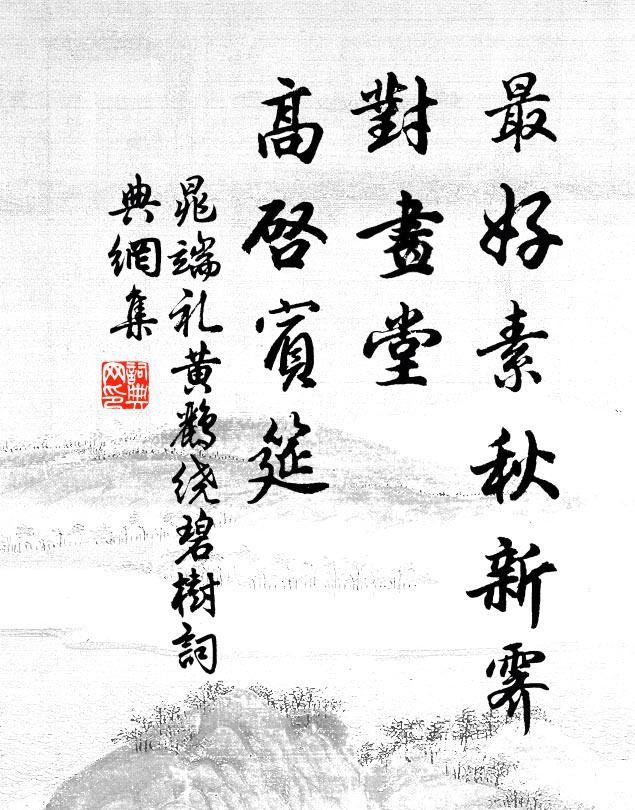 最好素秋新霽
對畫堂
高啓賓筵
晁端礼黄鸝绕碧樹詞
典網集
詞典
网印